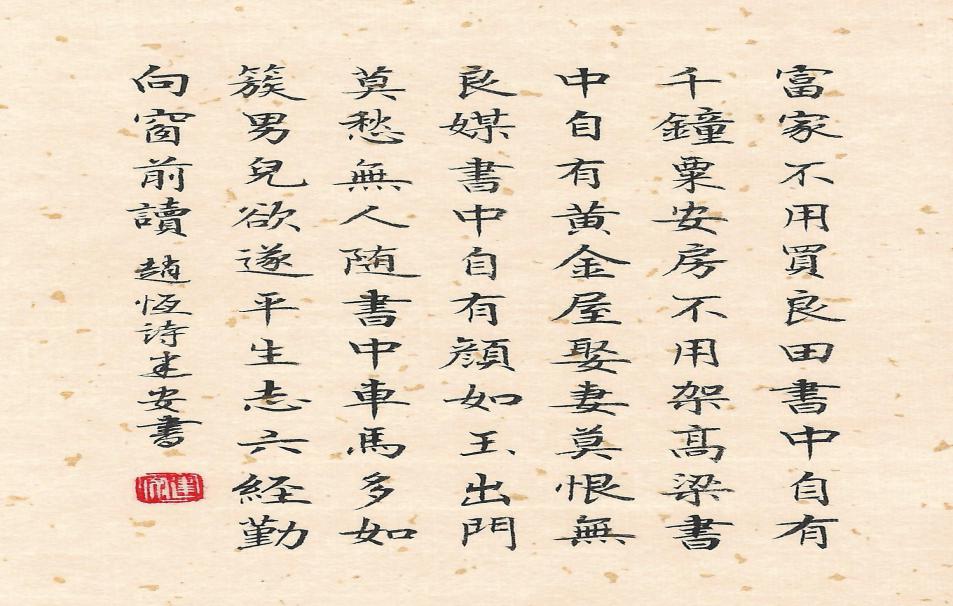 富家不用買良田書中自有
千鐘粟安房不用架高梁書
中自有黄金屋娶妻莫恨無
良媒書中自有顔如玉出門
莫愁無人随書中車馬多如
簇男兒欲遂平生志六経勤
向窗前讀
趙恆詩建安書
建安